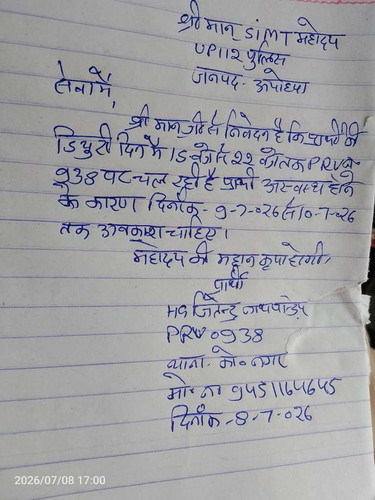 श्री मान् SiMT महोदय
UP112 पुलिस
जनपद- अयोध्या
सेवा में,
श्री मान जी से निवेदन है कि प्रार्थी की
डियुटी दिन में 15 बजे से 22 बजे तक PRV0-
0938 पर चल रही है प्रार्थी अस्वस्थ होने
के कारण दिनाँक- 9-7-026 से 10-7-026
तक अवकाश चाहिए।
महोदय की महान कृपा होगी,
प्रार्थी
HG जितेन्द्र नाथ पाण्डेय
PRV 0938
थाना- को० नगर
मो० न० 9451164645
दिनाँक -8-7-026
2026/07/08 17:00